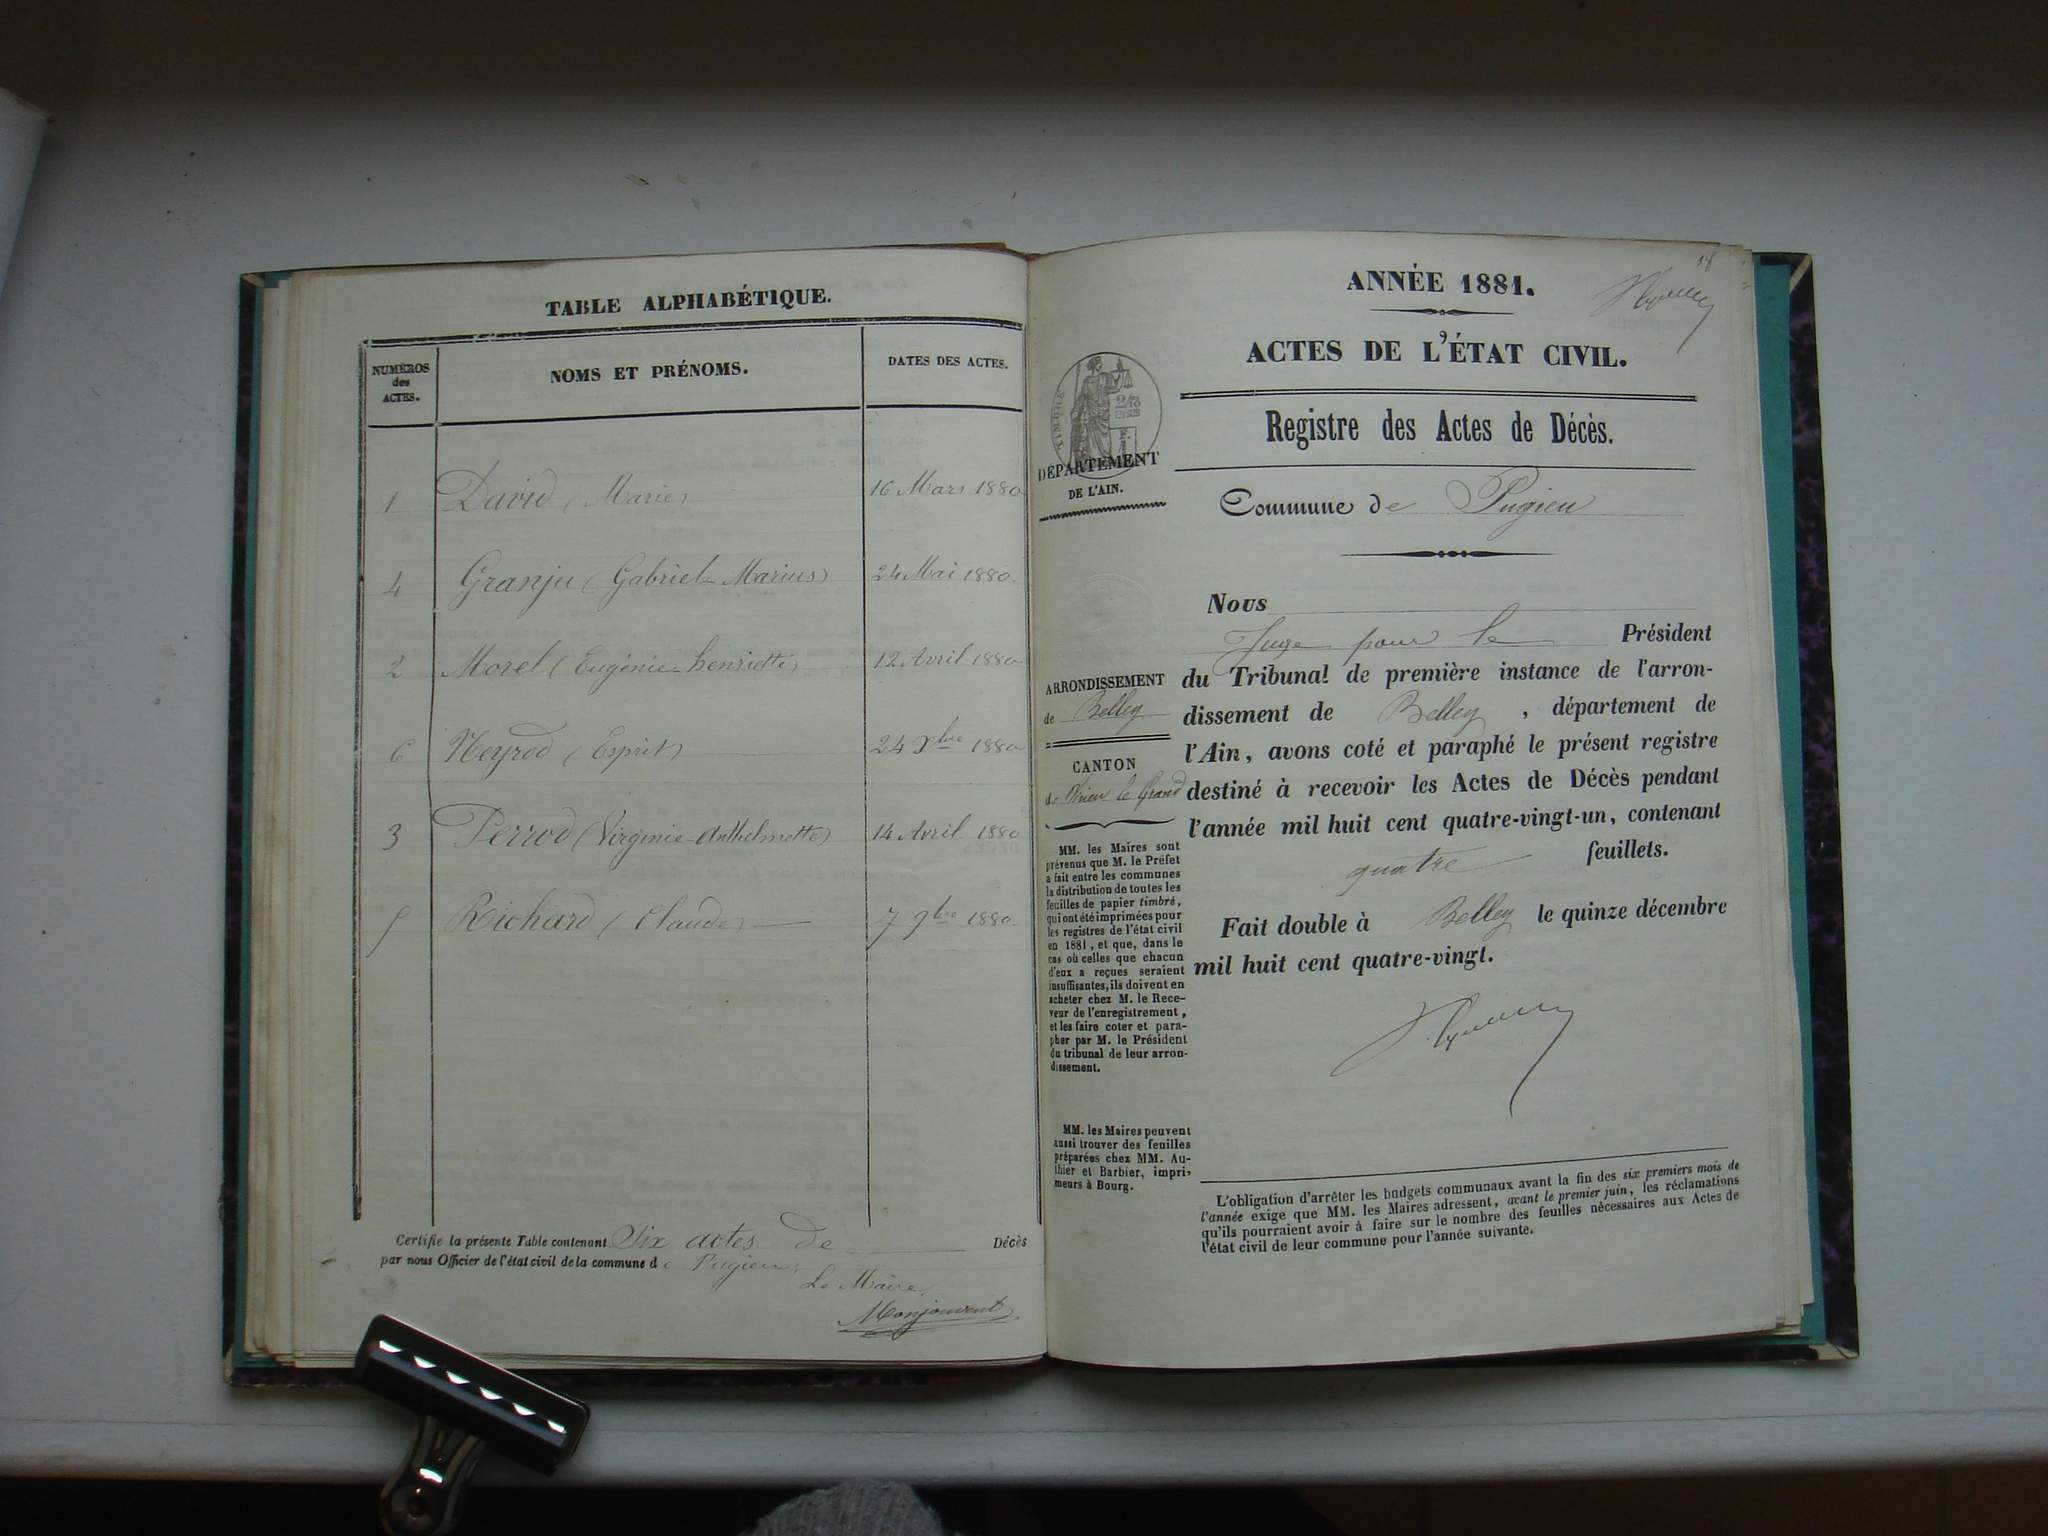 TABLE ALPHABÉTIQUE.
NUMÉROS
des
ACTES.
NOMS ET PRÉNOMS.
DATES DES ACTES.
1 David (Marie) 16 Mars 1880
4 Granju (Gabriel-Marius) 24 Mai 1880.
2 Morel (Eugénie-henriette) 12 Avril 1880
6 Neyrod (Esprit) 24 Xbre 1880
3 Perrod (Virginie-Anthelmette) 14 Avril 1880
5 Richard (Claude) 7 9bre 1880.
Certifie la présente Table contenant Six actes de Décès
par nous Officier de l'état civil de la commune de Pugieu.
Le Maire
Monjouvent
18
ANNÉE 1881.
ACTES DE L'ÉTAT CIVIL.
Registre des Actes de Décès.
TIMBRE
DÉPARTEMENT
DE L'AIN.
Commune de Pugieu
Nous
Juge pour le Président
du Tribunal de première instance de l'arron-
dissement de Belley, département de
l'Ain, avons coté et paraphé le présent registre
destiné à recevoir les Actes de Décès pendant
l'année mil huit cent quatre-vingt-un, contenant
quatre feuillets.
Fait double à Belley le quinze décembre
mil huit cent quatre-vingt.
ARRONDISSEMENT
de Belley
CANTON
de Virieu le Grand
MM. les Maires sont
prévenus que M. le Préfet
a fait entre les communes
la distribution de toutes les
feuilles de papier timbré,
qui ont été imprimées pour
les registres de l'état civil
en 1881, et que, dans le
cas où celles que chacun
d'eux a reçues seraient
insuffisantes, ils doivent en
acheter chez M. le Rece-
veur de l'enregistrement,
et les faire coter et para-
pher par M. le Président
du tribunal de leur arron-
dissement.
MM. les Maires peuvent
aussi trouver des feuilles
préparées chez MM. Au-
thier et Barbier, impri-
meurs à Bourg.
L'obligation d'arrêter les budgets communaux avant la fin des six premiers mois de
l'année exige que MM. les Maires adressent, avant le premier juin, les réclamations
qu'ils pourraient avoir à faire sur le nombre des feuilles nécessaires aux Actes de
l'état civil de leur commune pour l'année suivante.